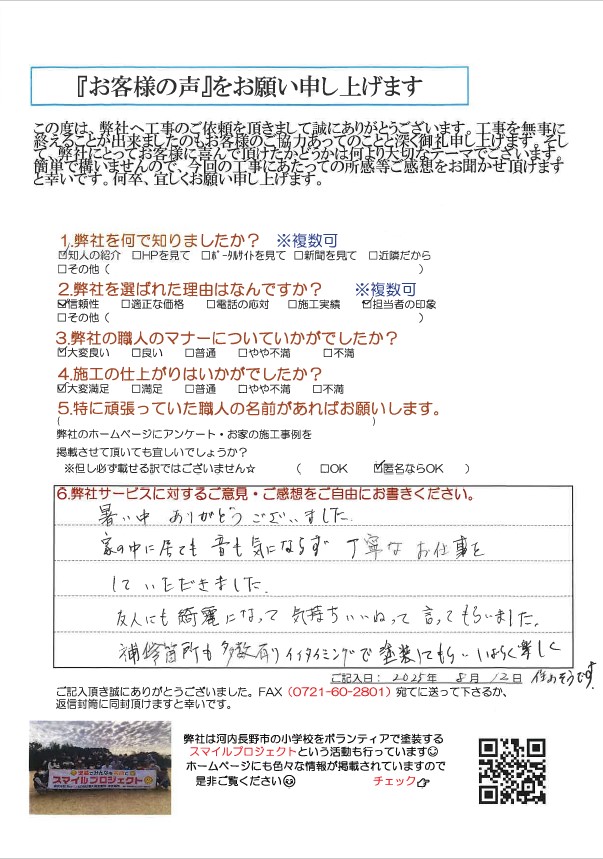 『お客様の声』をお願い申し上げます
この度は、弊社へ工事のご依頼を頂きまして誠にありがとうございます。工事を無事に
終えることが出来ましたのもお客様のご協力あってのことと深く御礼申し上げます。そし
て、弊社にとってお客様に喜んで頂けたかどうかは何より大切なテーマでございます。
簡単で構いませんので、今回の工事にあたっての所感等ご感想をお聞かせ頂けます
と幸いです。何卒、宜しくお願い申し上げます。
1.弊社を何で知りましたか? ※複数可
☑知人の紹介 □HPを見て □ポータルサイトを見て □新聞を見て □近隣だから
□その他( )
2.弊社を選ばれた理由はなんですか? ※複数可
☑信頼性 □適正な価格 □電話の応対 □施工実績 ☑担当者の印象
□その他( )
3.弊社の職人のマナーについていかがでしたか?
☑大変良い □良い □普通 □やや不満 □不満
4.施工の仕上がりはいかがでしたか?
☑大変満足 □満足 □普通 □やや不満 □不満
5.特に頑張っていた職人の名前があればお願いします。
( )
弊社のホームページにアンケート・お家の施工事例を
掲載させて頂いても宜しいでしょうか?
※但し必ず載せる訳ではございません☆ ( □OK ☑匿名ならOK )
6.弊社サービスに対するご意見・ご感想をご自由にお書きください。
暑い中 ありがとうございました。
家の中に居ても 音も気にならず 丁寧な お仕事を
して いただきました。
友人にも 綺麗になって 気持ちいいねって 言ってもらいました。
補修箇所も 多数有り イイタイミングで 塗装してもらい しばらく 楽しく
ご記入日:2025年 8月 12日 住めそうです。
ご記入頂き誠にありがとうございました。FAX(0721-60-2801)宛てに送って下さるか、
返信封筒に同封頂けますと幸いです。
塗装でみんなを笑顔に
スマイルプロジェクト
弊社は河内長野市の小学校をボランティアで塗装する
スマイルプロジェクトという活動も行っています☺
ホームページにも色々な情報が掲載されていますので
是非ご覧ください☺ チェック👉